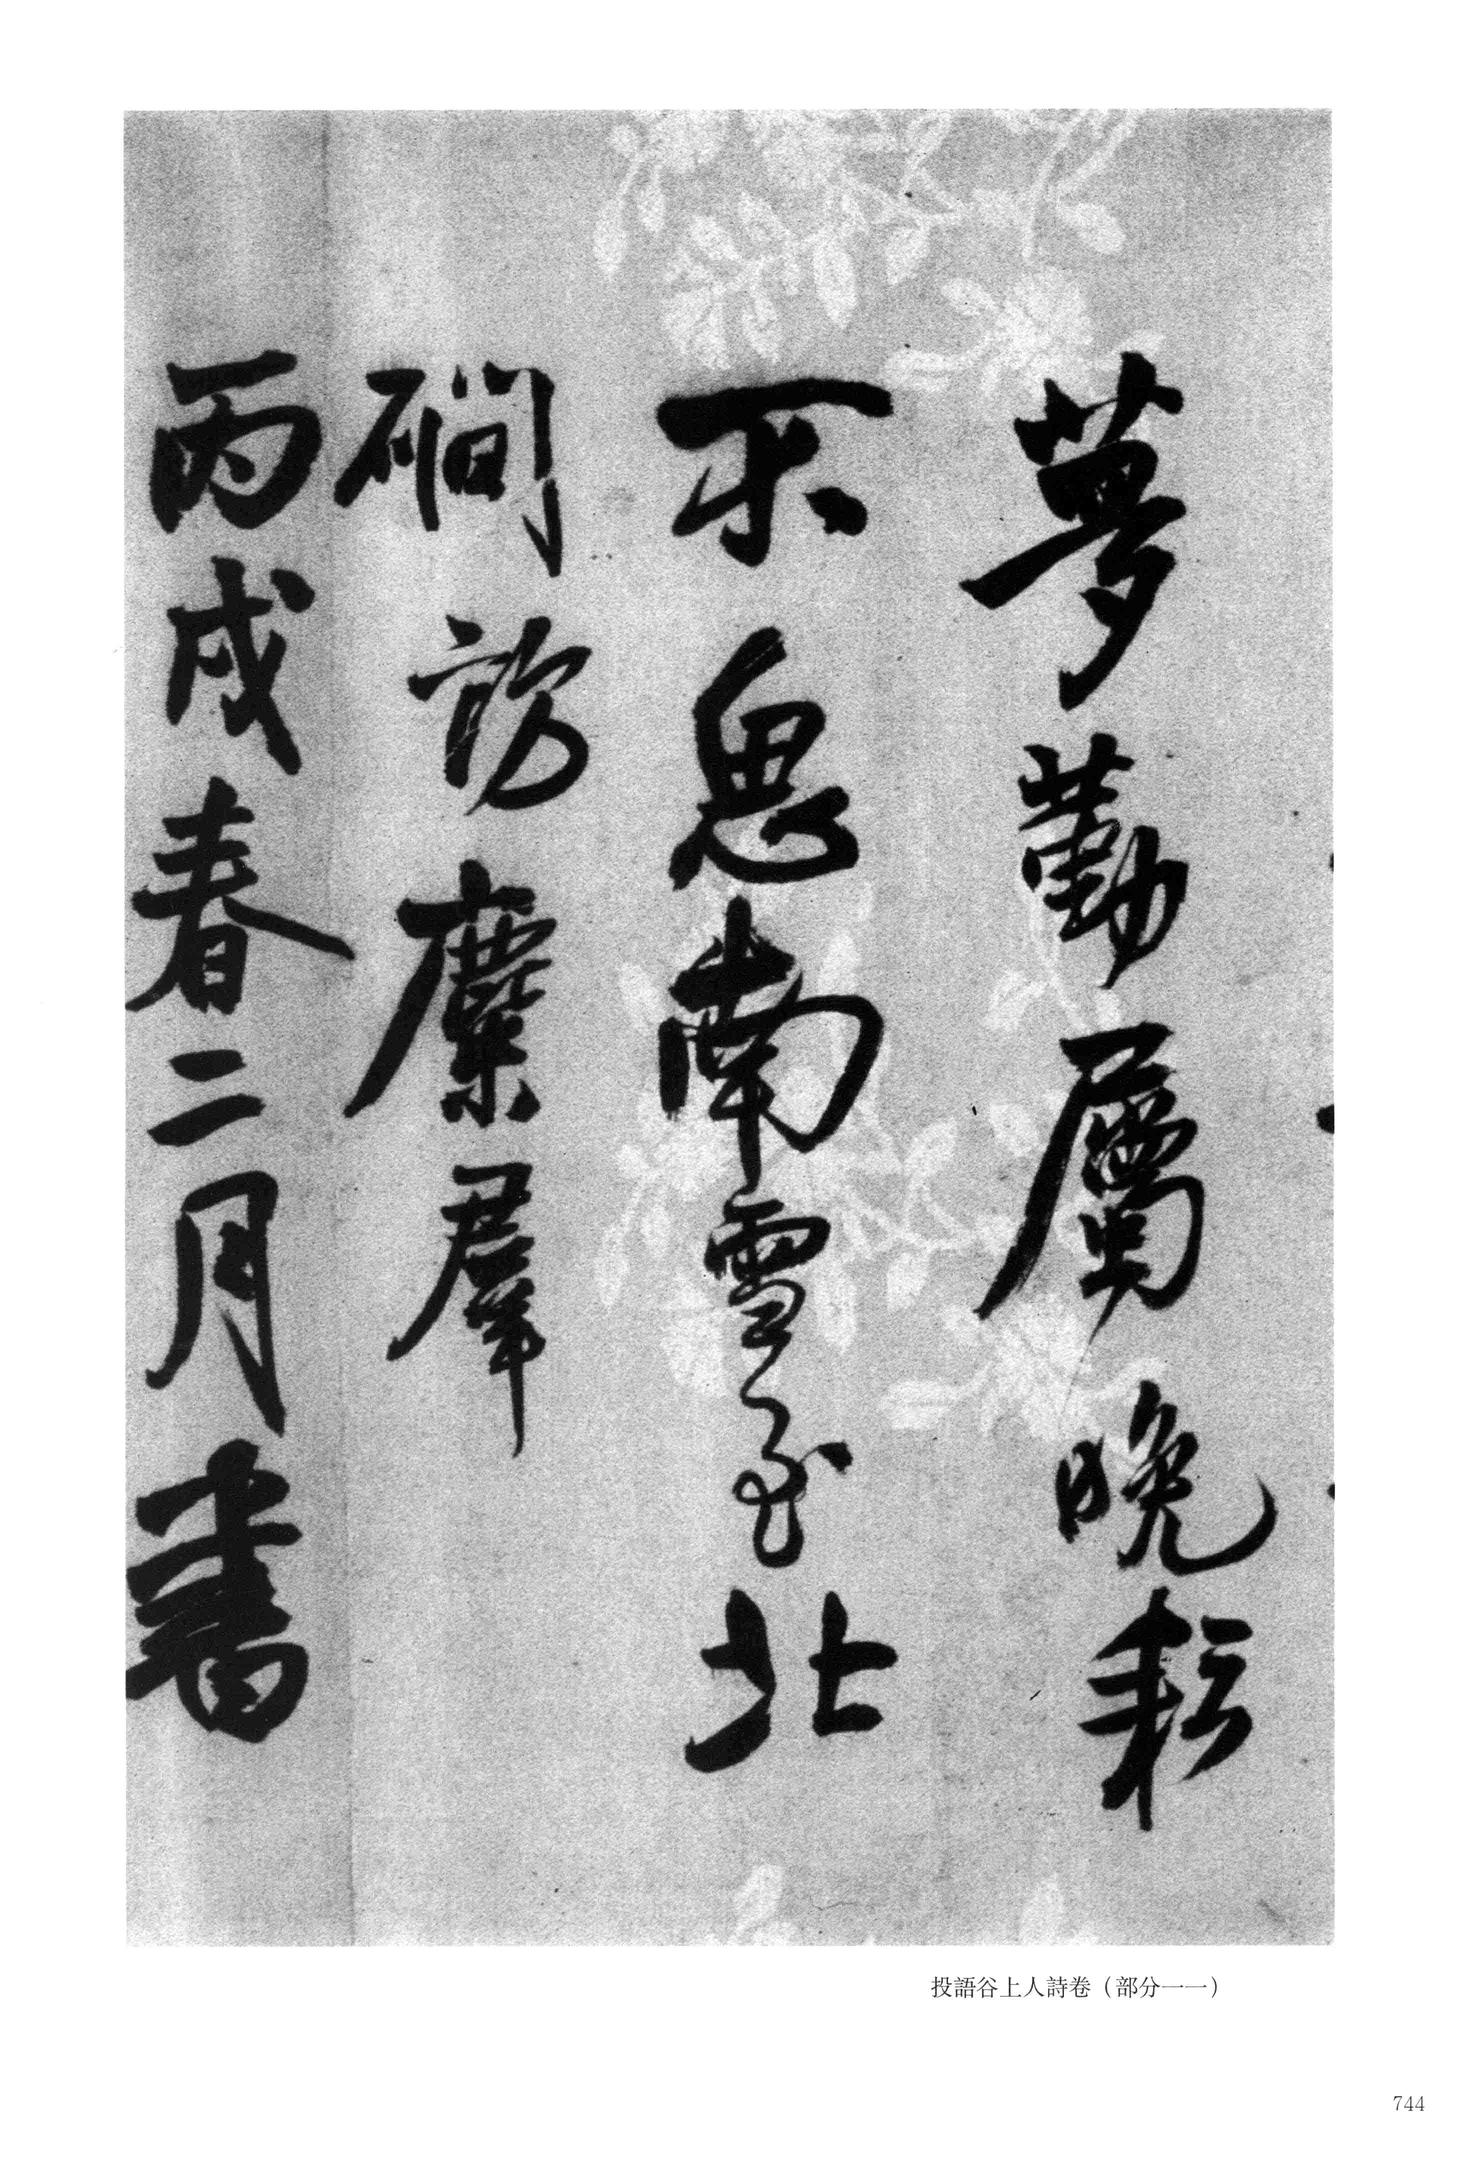 夢勤屬晚耘
不思南雪至北
磵訪麋羣
丙戌春二月書
投語谷上人詩卷（部分一一）
744